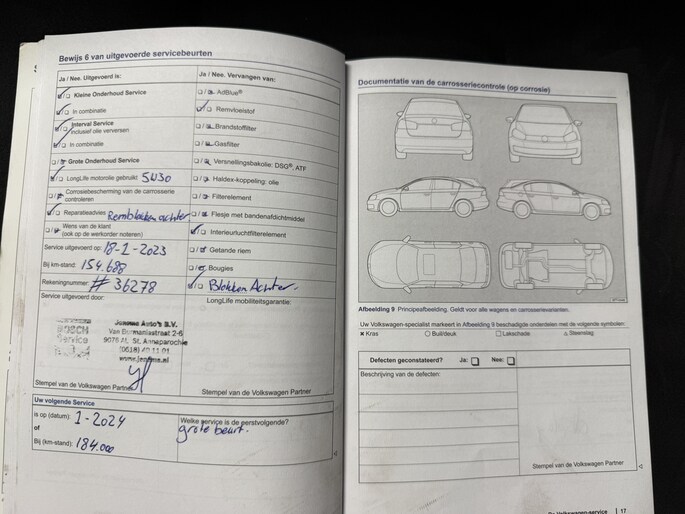 Bewijs 6 van uitgevoerde servicebeurten
Ja / Nee. Uitgevoerd is:
Kleine Onderhoud Service
In combinatie
Interval Service
inclusief olie verversen
In combinatie
Grote Onderhoud Service
LongLife motorolie gebruikt 5W30
Corrosiebescherming van de carrosserie
controleren
Reparatieadvies Remblokken achter
Wens van de klant
(ook op de werkorder noteren)
Service uitgevoerd op: 18-1-2023
Bij km-stand: 154.688
Rekeningnummer: # 36278
Service uitgevoerd door:
BOSCH
Service
Van Burmaniastraat 2-6
9076 St. Annaparochie
Stempel van de Volkswagen Partner
Ja / Nee. Vervangen van:
AdBlue®
Remvloeistof
Brandstoffilter
Gasfilter
Versnellingsbakolie: DSG®, ATF
Haldex-koppeling: olie
Filterelement
Flesje met bandenafdichtmiddel
Interieurluchtfilterelement
Getande riem
Bougies
Blokken Achter.
LongLife mobiliteitsgarantie:
Stempel van de Volkswagen Partner
Uw volgende Service
is op (datum): 1-2024
of
Bij (km-stand): 184.000
Welke service is de eerstvolgende?
grote beurt.
Documentatie van de carrosseriecontrole (op corrosie)
Afbeelding 9 Principeafbeelding. Geldt voor alle wagens en carrosserievarianten.
Uw Volkswagen-specialist markeert in Afbeelding 9 beschadigde onderdelen met de volgende symbolen:
x Kras ○ Buil/deuk □ Lakschade △ Steenslag
Defecten geconstateerd? Ja: Nee:
Beschrijving van de defecten:
Stempel van de Volkswagen Partner
De Volkswagen-service | 17